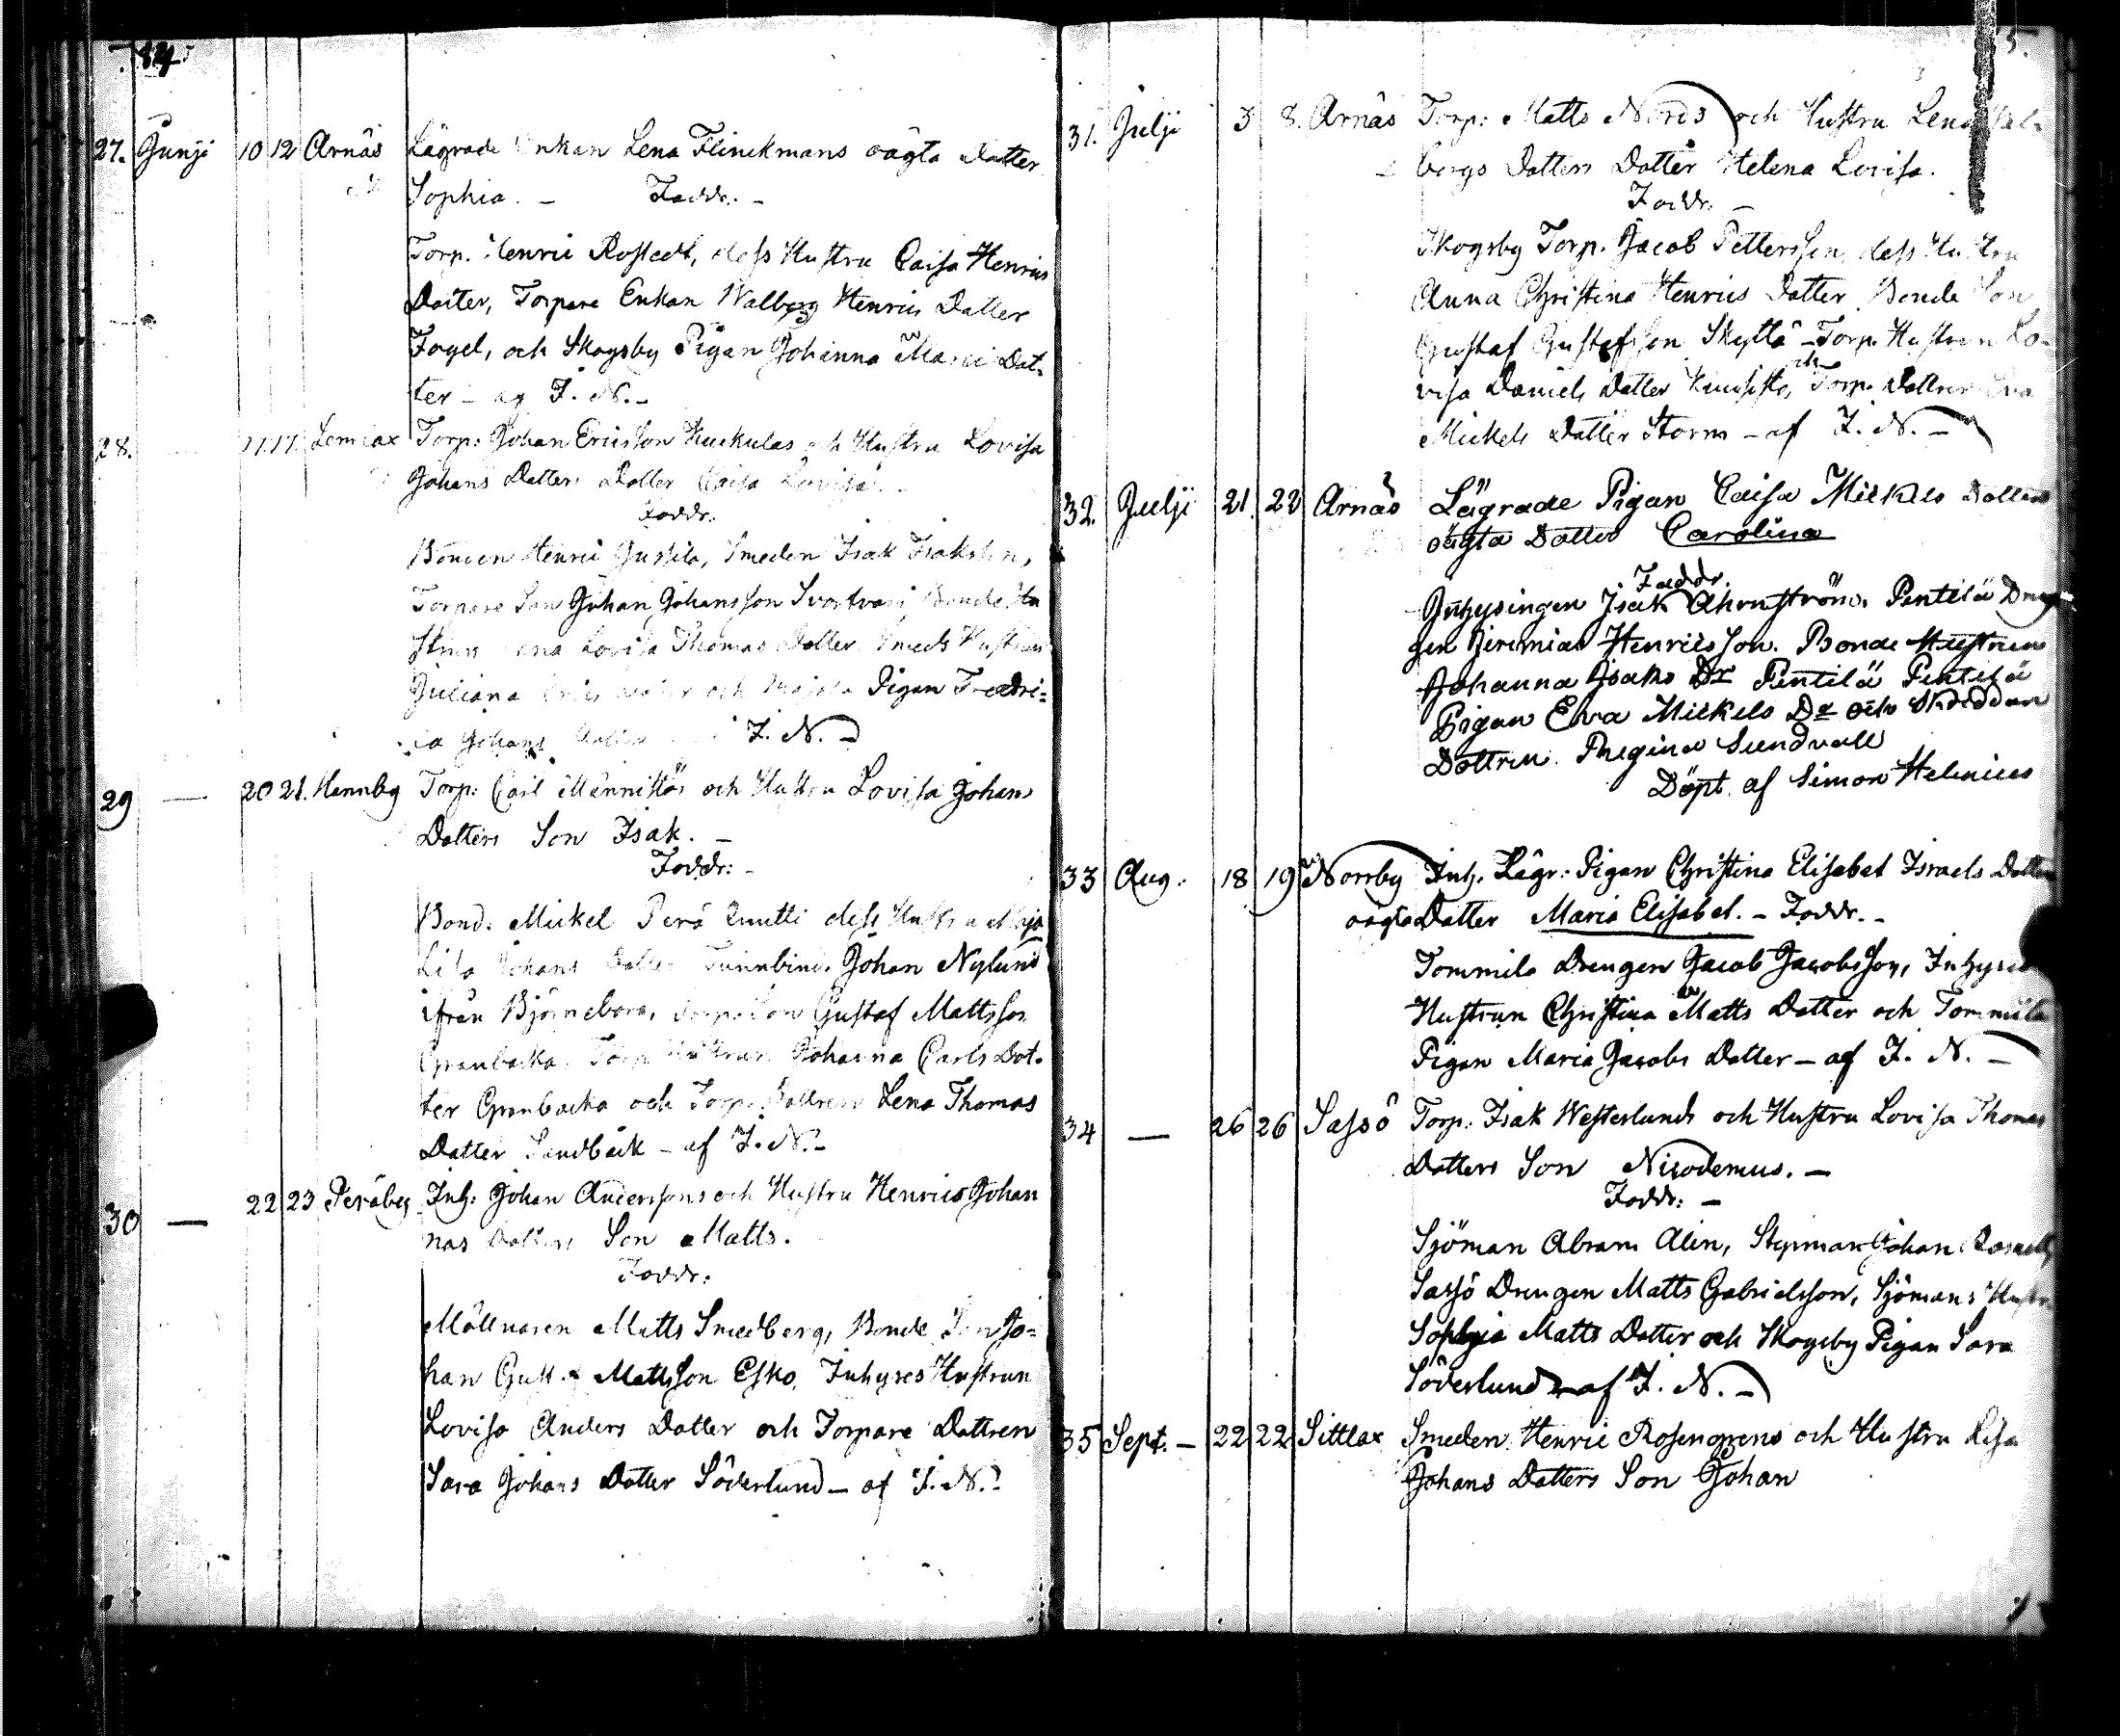 84
27. Junji 10 12 Arnäs Lägrade Enkan Lena Flinckmans oägta Datter
Sophia. - Faddr. -
Torp. Henric Rostedt, dess Hustru Caisa Henrics
Datter, Torpare Enkan Walborg Henrics Datter
Fogel, och Skogsby Pigan Johanna Matts Dat-
ter - af I. N. -
28. 17. 17. Lemlax Torp: Johan Ericsson Kuckulas och Hustru Lovisa
Johans Datters Datter Caisa Lovisa.
Faddr:
Bonden Henric Jussila, Smeden Isak Isaksson,
Torpare Son Johan Johansson Bonde Hu
strun Lena Lovisa Thomas Datter Smeds Hustrun
Juliana och Pigan Fredri-
ca Johans Datter I. N. -
29 — 20 21. Hennby Torp: Carl Männistös och Hustru Lovisa Johans
Datters Son Isak. -
Faddr: -
Bond. Mickel Perä dess Hustru Maja
Lisa Johans Datter Tunnbind. Johan Nylund
ifrån Björneborg, Torp. Son Gustaf Mattsson
Granbacka, Torp. Hustrun Johanna Carls Dot-
ter Granbacka och Torp. Dottren Lena Thomas
Datter Sandbäck - af I. N. -
30 — 22 23 Peräby Inh: Johan Anderssons och Hustru Henrica Johan
nas Datters Son Matts.
Faddr:
Möllnaren Matts Smedberg, Bonde Son Jo-
han Gust. Mattsson Esko, Inhyses Hustrun
Lovisa Anders Datter och Torpare Dottren
Sara Johans Datter Söderlund - af I. N. -
5.
31. Julji 3 8. Arnäs Torp: Matts Nords och Hustru Lena
bergs Datters Datter Helena Lovisa.
Faddr. -
Skogsby Torp. Jacob Pettersson, dess Hustru
Anna Christina Henrics Datter, Bonde Son
Gustaf Gustafsson Skyttä - Torp. Hustrun Lo-
visa Daniels Datter och Torp. Dottren Eva
Mickels Datter Storm - af I. N. -
32. Julji 21. 22 Arnäs Lägrade Pigan Caisa Mickels Datters
oägta Datter Carolina
Faddr.
Inhysingen Isak Ahrnström, Pentilä Dren
gen Jeremias Henricsson. Bonde Hustrun
Johanna Isaks Dr Pentilä Pentilä
Pigan Eva Mickels Dr och Skräddare
Dottren. Regina Sundvall
Döpt af Simon Helenius
33 Aug. 18 19 Norrby Inh. Lägr: Pigan Christina Elisabet Israels Datters
oägta Datter Maria Elisabet. - Faddr. -
Tommila Drengen Jacob Jacobsson, Inhyses
Hustrun Christina Matts Datter och Tommila
Pigan Maria Jacobs Datter - af I. N. -
34 — 26 26 Sassö Torp: Isak Westerlunds och Hustru Lovisa Thomas
Datters Son Nicodemus. -
Faddr: -
Sjöman Abram Alén, Styrman Johan
Sassö Drengen Matts Gabrielsson, Sjömans Hustru
Sophia Matts Datter och Skogsby Pigan Sara
Söderlund - af I. N. -
35 Sept. - 22 22 Sittlax Smeden Henric Rosengrens och Hustru Lisa
Johans Datters Son Johan